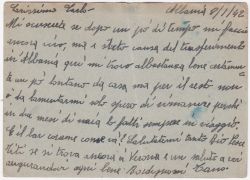 Carissimo Carlo Albania 9/1/42
Mi scuserete se dopo un pò di tempo, mi faccio
ancora vivo, ma è stato causa del trasferimento
in Albania qui mi trovo abbastanza bene certamente
un pò lontano da casa ma per il resto non
è da lamentarmi solo spero di rimanere perché
in due mesi di naia le fatti sempre in viaggio
E il bar come va? Salutatemi tanto
se si trova ancora a Verona e un saluto a voi
augurandovi ogni bene